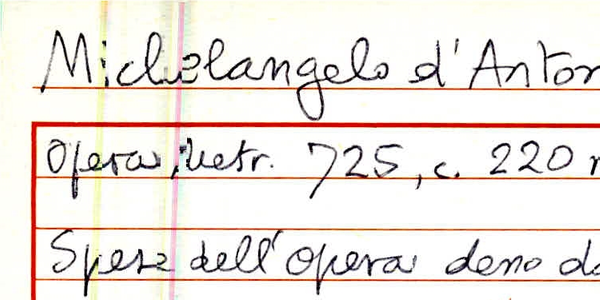 Michelangelo d'Anton
Opera, Metr. 725, c. 220 r
Spese dell'opera deno da